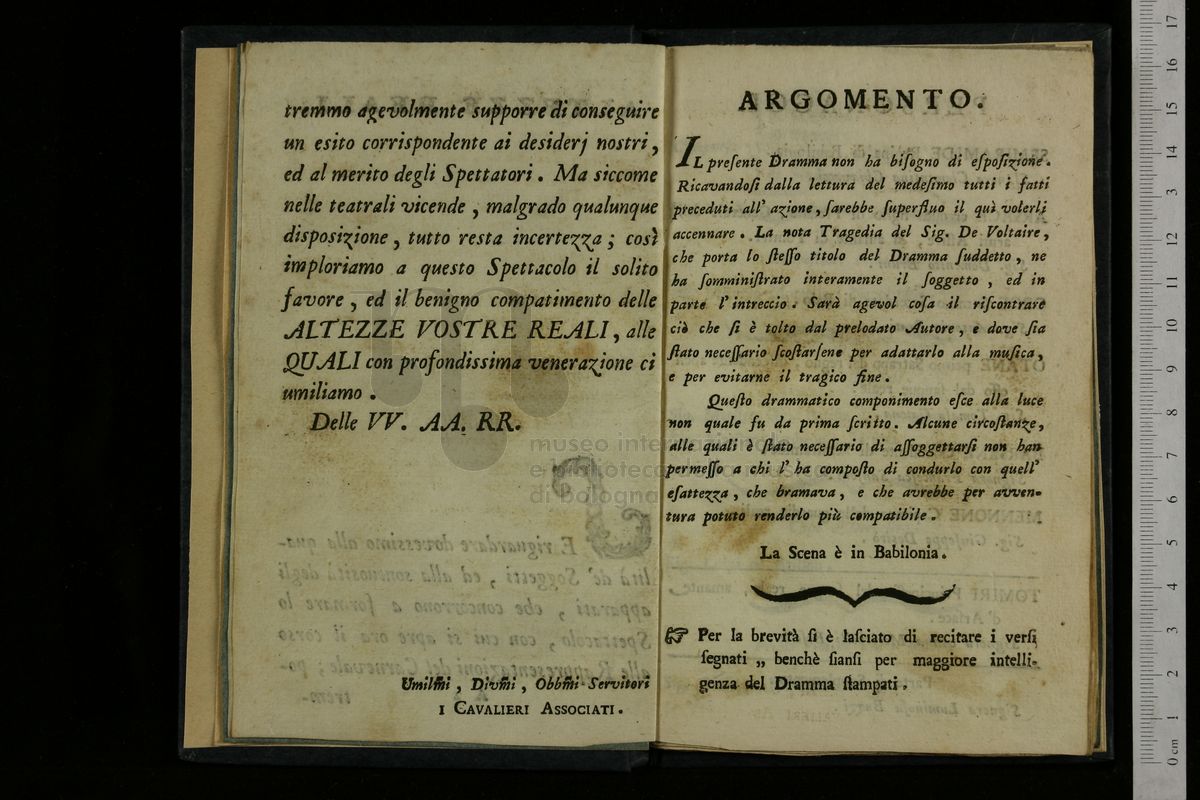 tremmo agevolmente supporre di conseguire
un esito corrispondente ai desiderj nostri,
ed al merito degli Spettatori. Ma siccome
nelle teatrali vicende, malgrado qualunque
disposizione, tutto resta incertezza; così
imploriamo a questo Spettacolo il solito
favore, ed il benigno compatimento delle
ALTEZZE VOSTRE REALI, alle
QUALI con profondissima venerazione ci
umiliamo.
Delle VV. AA. RR.
Umilm̃i, Divm̃i, Obbm̃i Servitori
I CAVALIERI ASSOCIATI.
ARGOMENTO.
IL preſente Dramma non ha biſogno di eſpoſizione.
Ricavandoſi dalla lettura del medeſimo tutti i fatti
preceduti all' azione, ſarebbe ſuperfluo il quì volerli
accennare. La nota Tragedia del Sig. De Voltaire,
che porta lo ſteſſo titolo del Dramma ſuddetto, ne
ha ſomminiſtrato interamente il ſoggetto, ed in
parte l' intreccio. Sarà agevol coſa il riſcontrare
ciò che ſi è tolto dal prelodato Autore, e dove ſia
ſtato neceſſario ſcoſtarſene per adattarlo alla muſica,
e per evitarne il tragico fine.
Queſto drammatico componimento eſce alla luce
non quale fu da prima ſcritto. Alcune circoſtanze,
alle quali è ſtato neceſſario di aſſoggettarſi non han
permeſſo a chi l' ha compoſto di condurlo con quell'
eſattezza, che bramava, e che avrebbe per avven-
tura potuto renderlo più compatibile.
La Scena è in Babilonia.
☞ Per la brevità ſi è laſciato di recitare i verſi
ſegnati „ benchè ſianſi per maggiore intelli-
genza del Dramma ſtampati.
museo internazionale
e biblioteca della musica
di bologna
0 cm 1 2 3 4 5 6 7 8 9 10 11 12 13 14 15 16 17